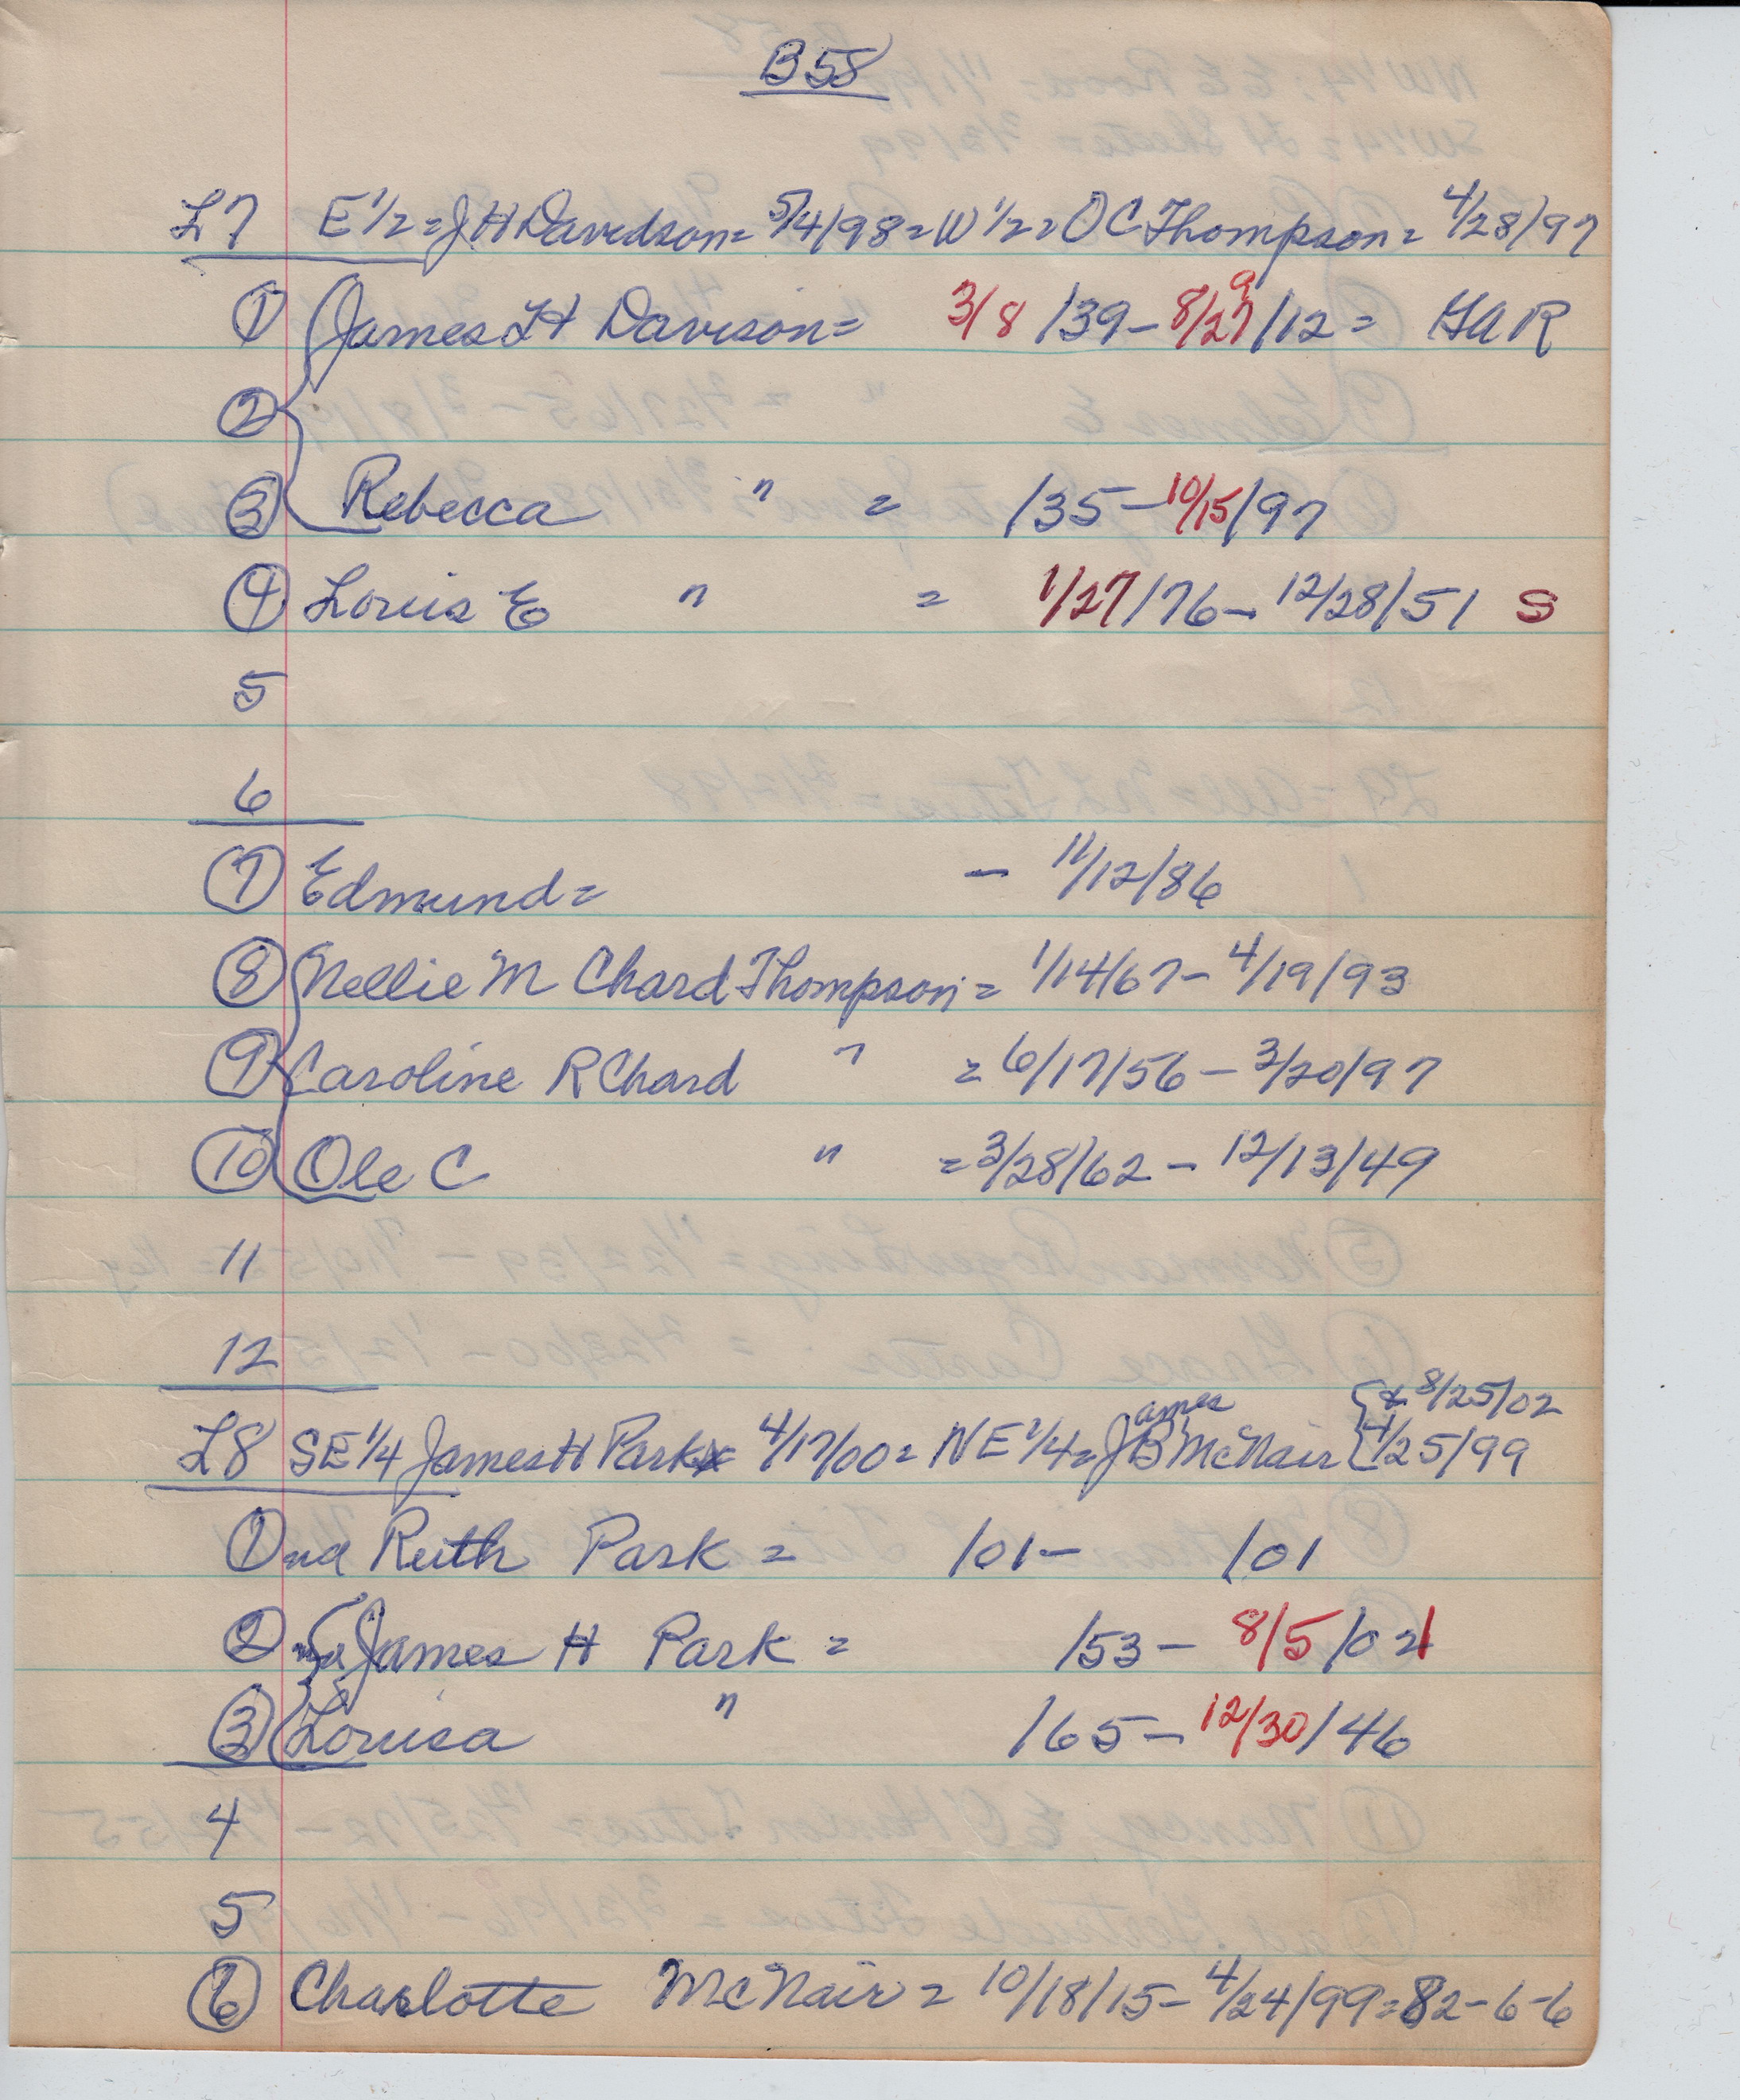 B58
L7 E 1/2 = J H Davidson = 5/4/98 = W 1/2 = O C Thompson = 4/28/97
1 James H Davison = 3/8/39 - 8/27/12 = GAR
9
2
3 Rebecca " = /35 - 10/15/97
4 Louis E " = 1/27/76 - 12/28/51 S
5
6
7 Edmund = - 11/12/86
8 Nellie M Chard Thompson = 1/14/67 - 4/19/93
9 Caroline R Chard " = 6/17/56 - 3/20/97
10 Ole C " = 3/28/62 - 12/13/49
11
12
& 8/25/02
L8 SE 1/4 James H Park 4/17/00 = NE 1/4 = James B McNair 4/25/99
1 na Ruth Park = /01 - /01
2 na James H Park = /53 - 8/5/01
3 Louisa " /65 - 12/30/46
4
5
6 Charlotte McNair = 10/18/15 - 4/24/99 = 82-6-6